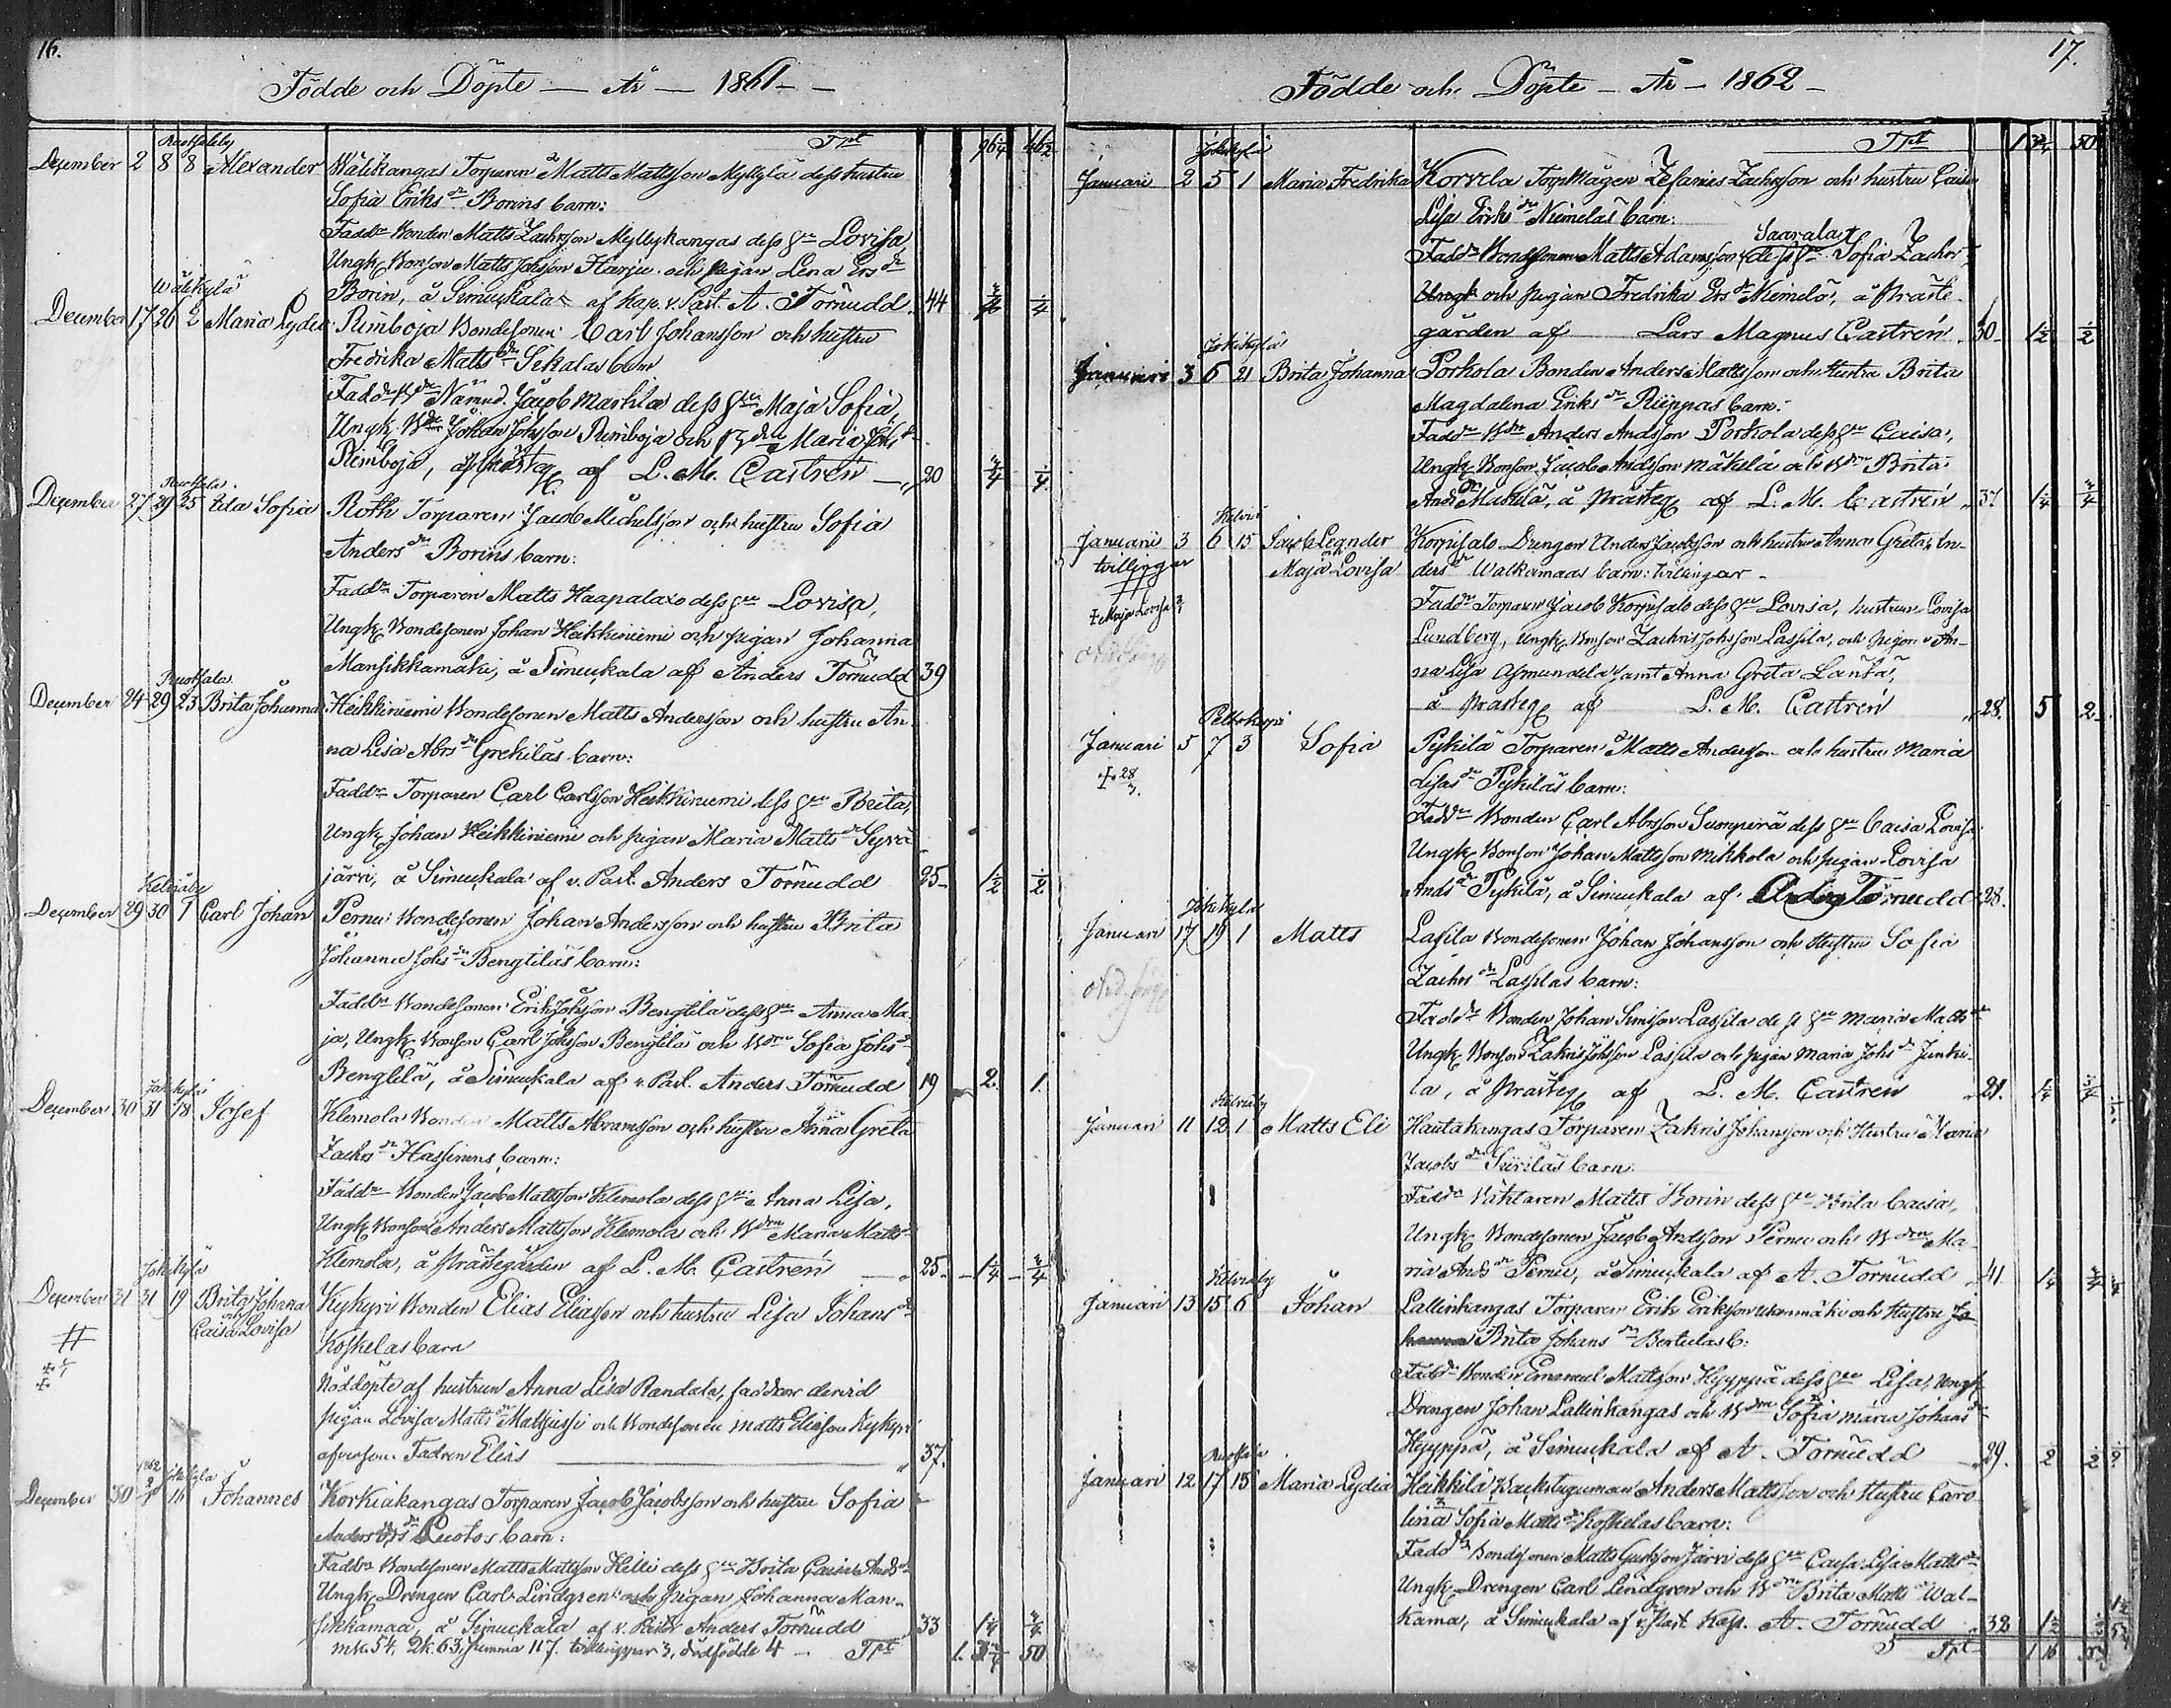 16.
Födde och Döpte — År — 1861 —
Tpt 96 1/4 46 1/2
Ruotsaloby
December 2 8 8 Alexander Wälikangas Torparen Matts Mattsson Myllylä dess hustru
Sofia Eriks dr Borins barn:
Faddr Bonden Matts Zachrsson Myllykangas dess hu Lovisa,
Ungk. Bonson Matts Johsson Harju och pigan Lena Ers dr
Borin, å Simunkala af kap. v. Past. A. Törnudd 44
Wälikylä
December 17 26 2 Maria Lydia Rimboja Bondesonen Carl Johansson och hustru
Fredrika Matts dr Sikalas barn
Faddr Nämnd. Jacob Marttila dess hu Maja Sofia,
Ungk. Johan Johsson Rimboja och Maria Johs dr
Rimboja, af L. M. Castrén 20
Ruotsalo
December 27 29 25 Ida Sofia Roth Torparen Jacob Michelsson och hustru Sofia
Anders dr Borins barn:
Faddr Torparen Matts Haapalaxo dess hu Lovisa,
Ungk Bondesonen Johan Heikkiniemi och pigan Johanna
Mansikkamäki, å Simunkala af Anders Törnudd 39
Ruotsalo
December 24 29 23 Brita Johanna Heikkiniemi Bondesonen Matts Andersson och hustru An-
na Lisa Abrs dr Grekiläs barn:
Faddr Torparen Carl Carlsson Heikkiniemi dess hu Brita,
Ungk. Johan Heikkiniemi och pigan Maria Matts dr Syrä-
järvi, å Simunkala af v. Past. Anders Törnudd 25 1/2 1/2
Kelviåby
December 29 30 1 Carl Johan Pernu Bondesonen Johan Andersson och hustru Brita
Johanna Johs dr Bengtiläs barn:
Faddr Bondesonen Erik Johsson Bengtilä dess hu Anna Ma-
ja, Ungk. Bonson Carl Johsson Bengtilä och Bdrn Sofia Johs dr
Bengtilä, å Simunkala af v. Past. Anders Törnudd 19 2. 1.
Jokikylä
December 30 31 18 Josef Klemola Bonden Matts Abramsson och hustru Anna Greta
Zachs dr Hassinens barn:
Faddr Bonden Jacob Mattsson Klemola dess hu Anna Lisa,
Ungk. Bonson Anders Mattsson Klemola och Bdrn Maria Matts dr
Klemola, å Prästegården af L. M. Castrén 25. 1/4
Jokikylä
December 31 31 19 Brita Johana Kykyri Bonden Elias Eliasson och hustru Lisa Johans dr
och
Caisa Lovisa Koskelas barn
Nöddöpte af hustrun Anna Lisa Randala, faddrar dervid
pigan Lovisa Matts dr Matjussi och Bondesonen Matts Eliasson Kykyri
afverson. Fadren Elias 37.
1862 Jokikylä
December 30 2 16 Johannes Korkiakangas Torparen Jacob Jacobsson och hustru Sofia
Anders dr Luotos barn:
Faddr Bondesonen Matts Mattsson Hilli dess hu Brita Caisa Ands dr
Ungk. Drengen Carl Lindgren och Pigan Johanna Man-
sikkamaa, å Simunkala af v. Past. Anders Törnudd 33 1/4
mk. 54, Qk. 63, summa 117. tvillingpar 3, dödfödde 4 — Tpt 1. 50
17.
Födde och Döpte — År — 1862 —
Tpt 50
Jokikylä
Januari 2 5 1 Maria Fredrika Korvela Torp.Mågen Zefanias Zachrsson och hustru Caisa
Lisa Eriks dr Niemeläs barn:
Saarala
Faddr Bondsonen Matts Adamsson dess hu Sofia Zachrs dr
Ungk och pigan Fredrika Ers dr Niemelä, å Präste-
gården af Lars Magnus Castrén. 30 1/2 1/2
Jokikylä
Januari 3 6 21 Brita Johanna Porkola Bonden Anders Mattsson och Hustru Brita
Magdalena Eriks dr Riippas barn:
Faddr Bdn Anders Andsson Porkola dess hu Caisa,
Ungk. Bonson Jacob Andsson Mäkelä och Bdrn Brita
Ands dr Mäkelä, å Prästeg af L. M. Castrén 37. 1/4
Kelviå
Januari 3 6 15 Jacob Leander Korpisalo Drengen Anders Jacobsson och hustru Anna Greta An-
tvillingar Maja Lovisa ders dr Walkamaas barn: tvillingar.
Faddr Torparen Jacob Korpisalo dess hu Lovisa, hustrun Lovisa
† Maja Lovisa
Lundberg, Ungk. Bonson Zachris Johsson Lassila, och pigan An-
na Lisa Asmundela samt Anna Greta Länkä,
å Prästeg af L. M. Castrén 28. 5 2
Peltokorpi
Januari 5 7 3 Sofia Pykilä Torparen Matts Andersson och hustru Maria
† 28/3.
Lisas dr Pykiläs barn:
Faddr Bonden Carl Abrsson Suonperä dess hu Caisa Lovisa
Ungk. Bonson Johan Mattsson Mikkola och pigan Lovisa
Ands dr Pykilä, å Simunkala af Anders Törnudd 28.
Jokikylä
Januari 17 19 1 Matts Lassila Bondesonen Johan Johansson och Hustru Sofia
Zachrs dr Lassilas barn:
Faddr Bonden Johan Simsson Lassila dess hu Maria Matts dr
Ungk. Bonson Zakris Johsson Lassila och pigan Maria Johs dr Junki-
la, å Prästeg af L. M. Castrén 21. 1/4
Kelviåby
Januari 11 12 1 Matts Eli Hautakangas Torparen Zakris Johansson och Hustru Maria
Jacobs dr Siiriläs barn:
Faddr Väktaren Matts Borin dess hu Brita Caisa,
Ungk. Bondesonen Jacob Andsson Pernu och Bdrn Ma-
ria Ands dr Pernu, å Simunkala af A. Törnudd 41. 1/4
Kelviåby
Januari 13 15 6 Johan Lallinkangas Torparen Erik Eriksson och Hustru Jo-
hanna Brita Johans dr Bertulas b:
Faddr Bonden Emanuel Mattsson Hyyppä dess hu Lisa, Ungk.
Drengen Johan Lallinkangas och Bdrn Sofia Maria Johans dr
Hyyppä, å Simunkala af A. Törnudd 29. 2
Ruotsalo
Januari 12 17 15 Maria Lydia Heikkilä Backstuguman Anders Mattsson och Hustru Caro-
lina Sofia Matts dr Koskelas barn:
Faddr Bondesonen Matts Gustsson Järvi dess hu Caisa Lisa Matts dr
Ungk. Drengen Carl Lindgren och Bdrn Brita Matts dr Wal-
kama, å Simunkala af v. Past. Kap. A. Törnudd 38
Tpt